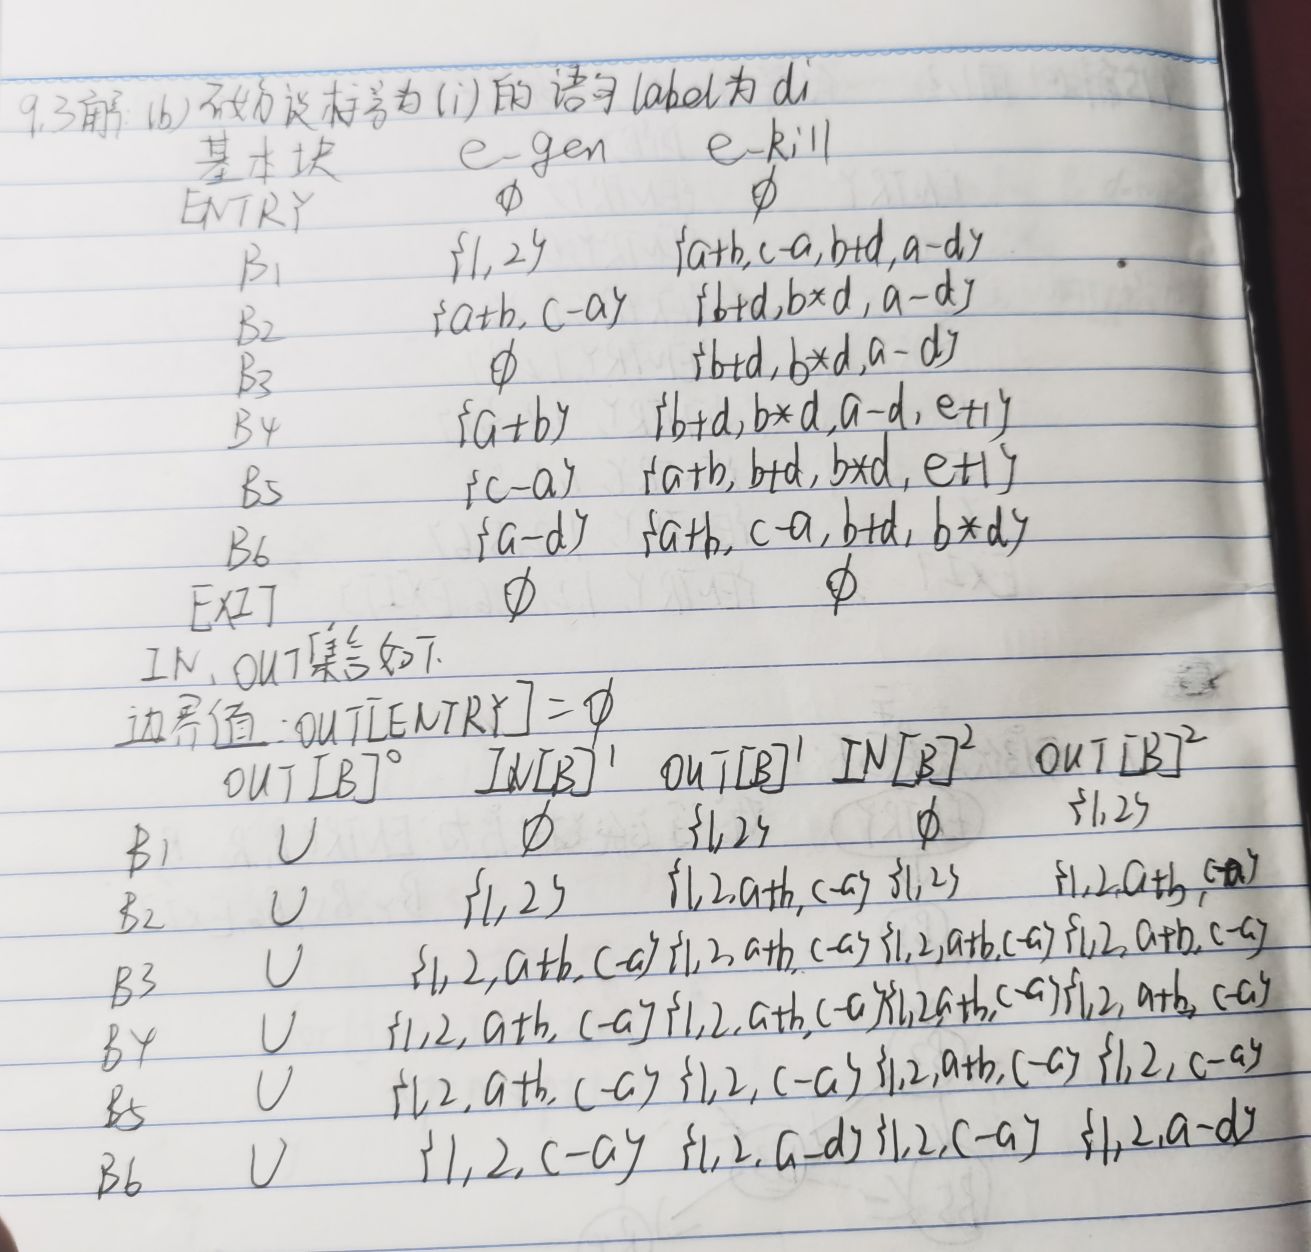 9.3解:(b)不妨设标号为(i)的语句label为di
基本块 e-gen e-kill
ENTRY ∅ ∅
B1 {1,2} {a+b,c-a,b+d,a-d}
B2 {a+b,c-a} {b+d,b*d,a-d}
B3 ∅ {b+d,b*d,a-d}
B4 {a+b} {b+d,b*d,a-d,e+1}
B5 {c-a} {a+b,b+d,b*d,e+1}
B6 {a-d} {a+b,c-a,b+d,b*d}
EXIT ∅ ∅
IN、OUT集合如下.
边界值:OUT[ENTRY]=∅
OUT[B]⁰ IN[B]¹ OUT[B]¹ IN[B]² OUT[B]²
B1 U ∅ {1,2} ∅ {1,2}
B2 U {1,2} {1,2,a+b,c-a} {1,2} {1,2,a+b,c-a}
B3 U {1,2,a+b,c-a} {1,2,a+b,c-a} {1,2,a+b,c-a} {1,2,a+b,c-a}
B4 U {1,2,a+b,c-a} {1,2,a+b,c-a} {1,2,a+b,c-a} {1,2,a+b,c-a}
B5 U {1,2,a+b,c-a} {1,2,c-a} {1,2,a+b,c-a} {1,2,c-a}
B6 U {1,2,c-a} {1,2,a-d} {1,2,c-a} {1,2,a-d}